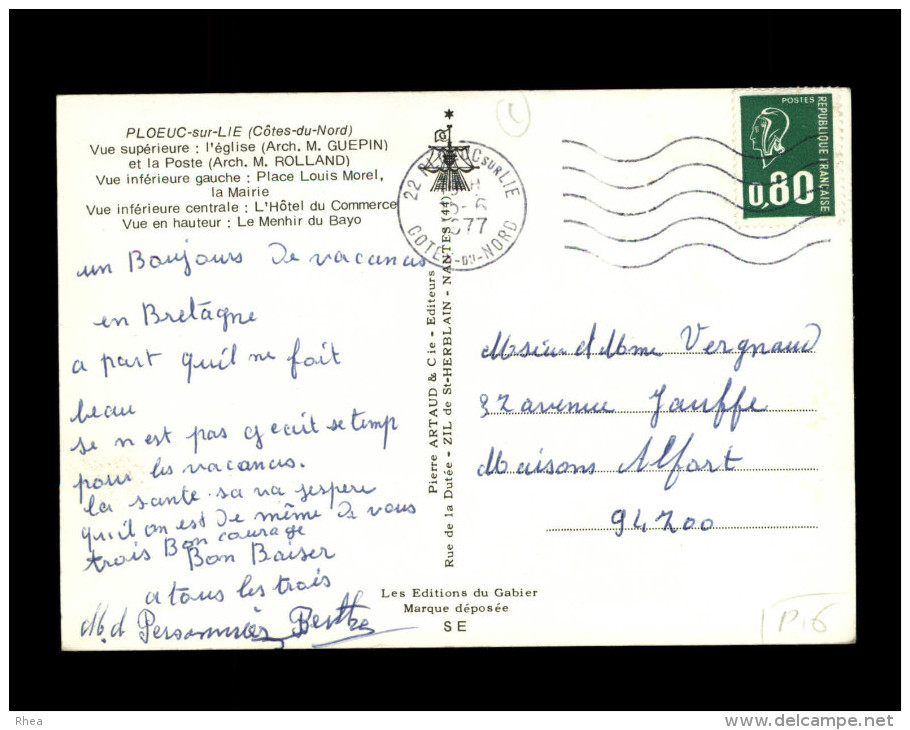 PLOEUC-sur-LIE (Côtes-du-Nord)
Vue supérieure : l'église (Arch. M. GUEPIN)
et la Poste (Arch. M. ROLLAND)
Vue inférieure gauche : Place Louis Morel,
la Mairie
Vue inférieure centrale : L'Hôtel du Commerce
Vue en hauteur : Le Menhir du Bayo
un Bonjours De vacances
en Bretagne
a part qu'il ne fait
beau
se n est pas se temp
pour les vacances.
la santé sa va jespere
qu'il on est De même De vous
trois Bon courage
Bon Baiser
a tous les trois
Berthe
Pierre ARTAUD & Cie - Editeurs
Rue de la Dutée - ZIL de St-HERBLAIN - NANTES (44)
22 SUR LIE
COTES-DU-NORD
POSTES
REPUBLIQUE FRANÇAISE
0,80
et Mme Vergnaud
32 avenue Jauffe
Maisons Alfort
94200
Les Editions du Gabier
Marque déposée
SE
P.6
Rhea
www.delcampe.net